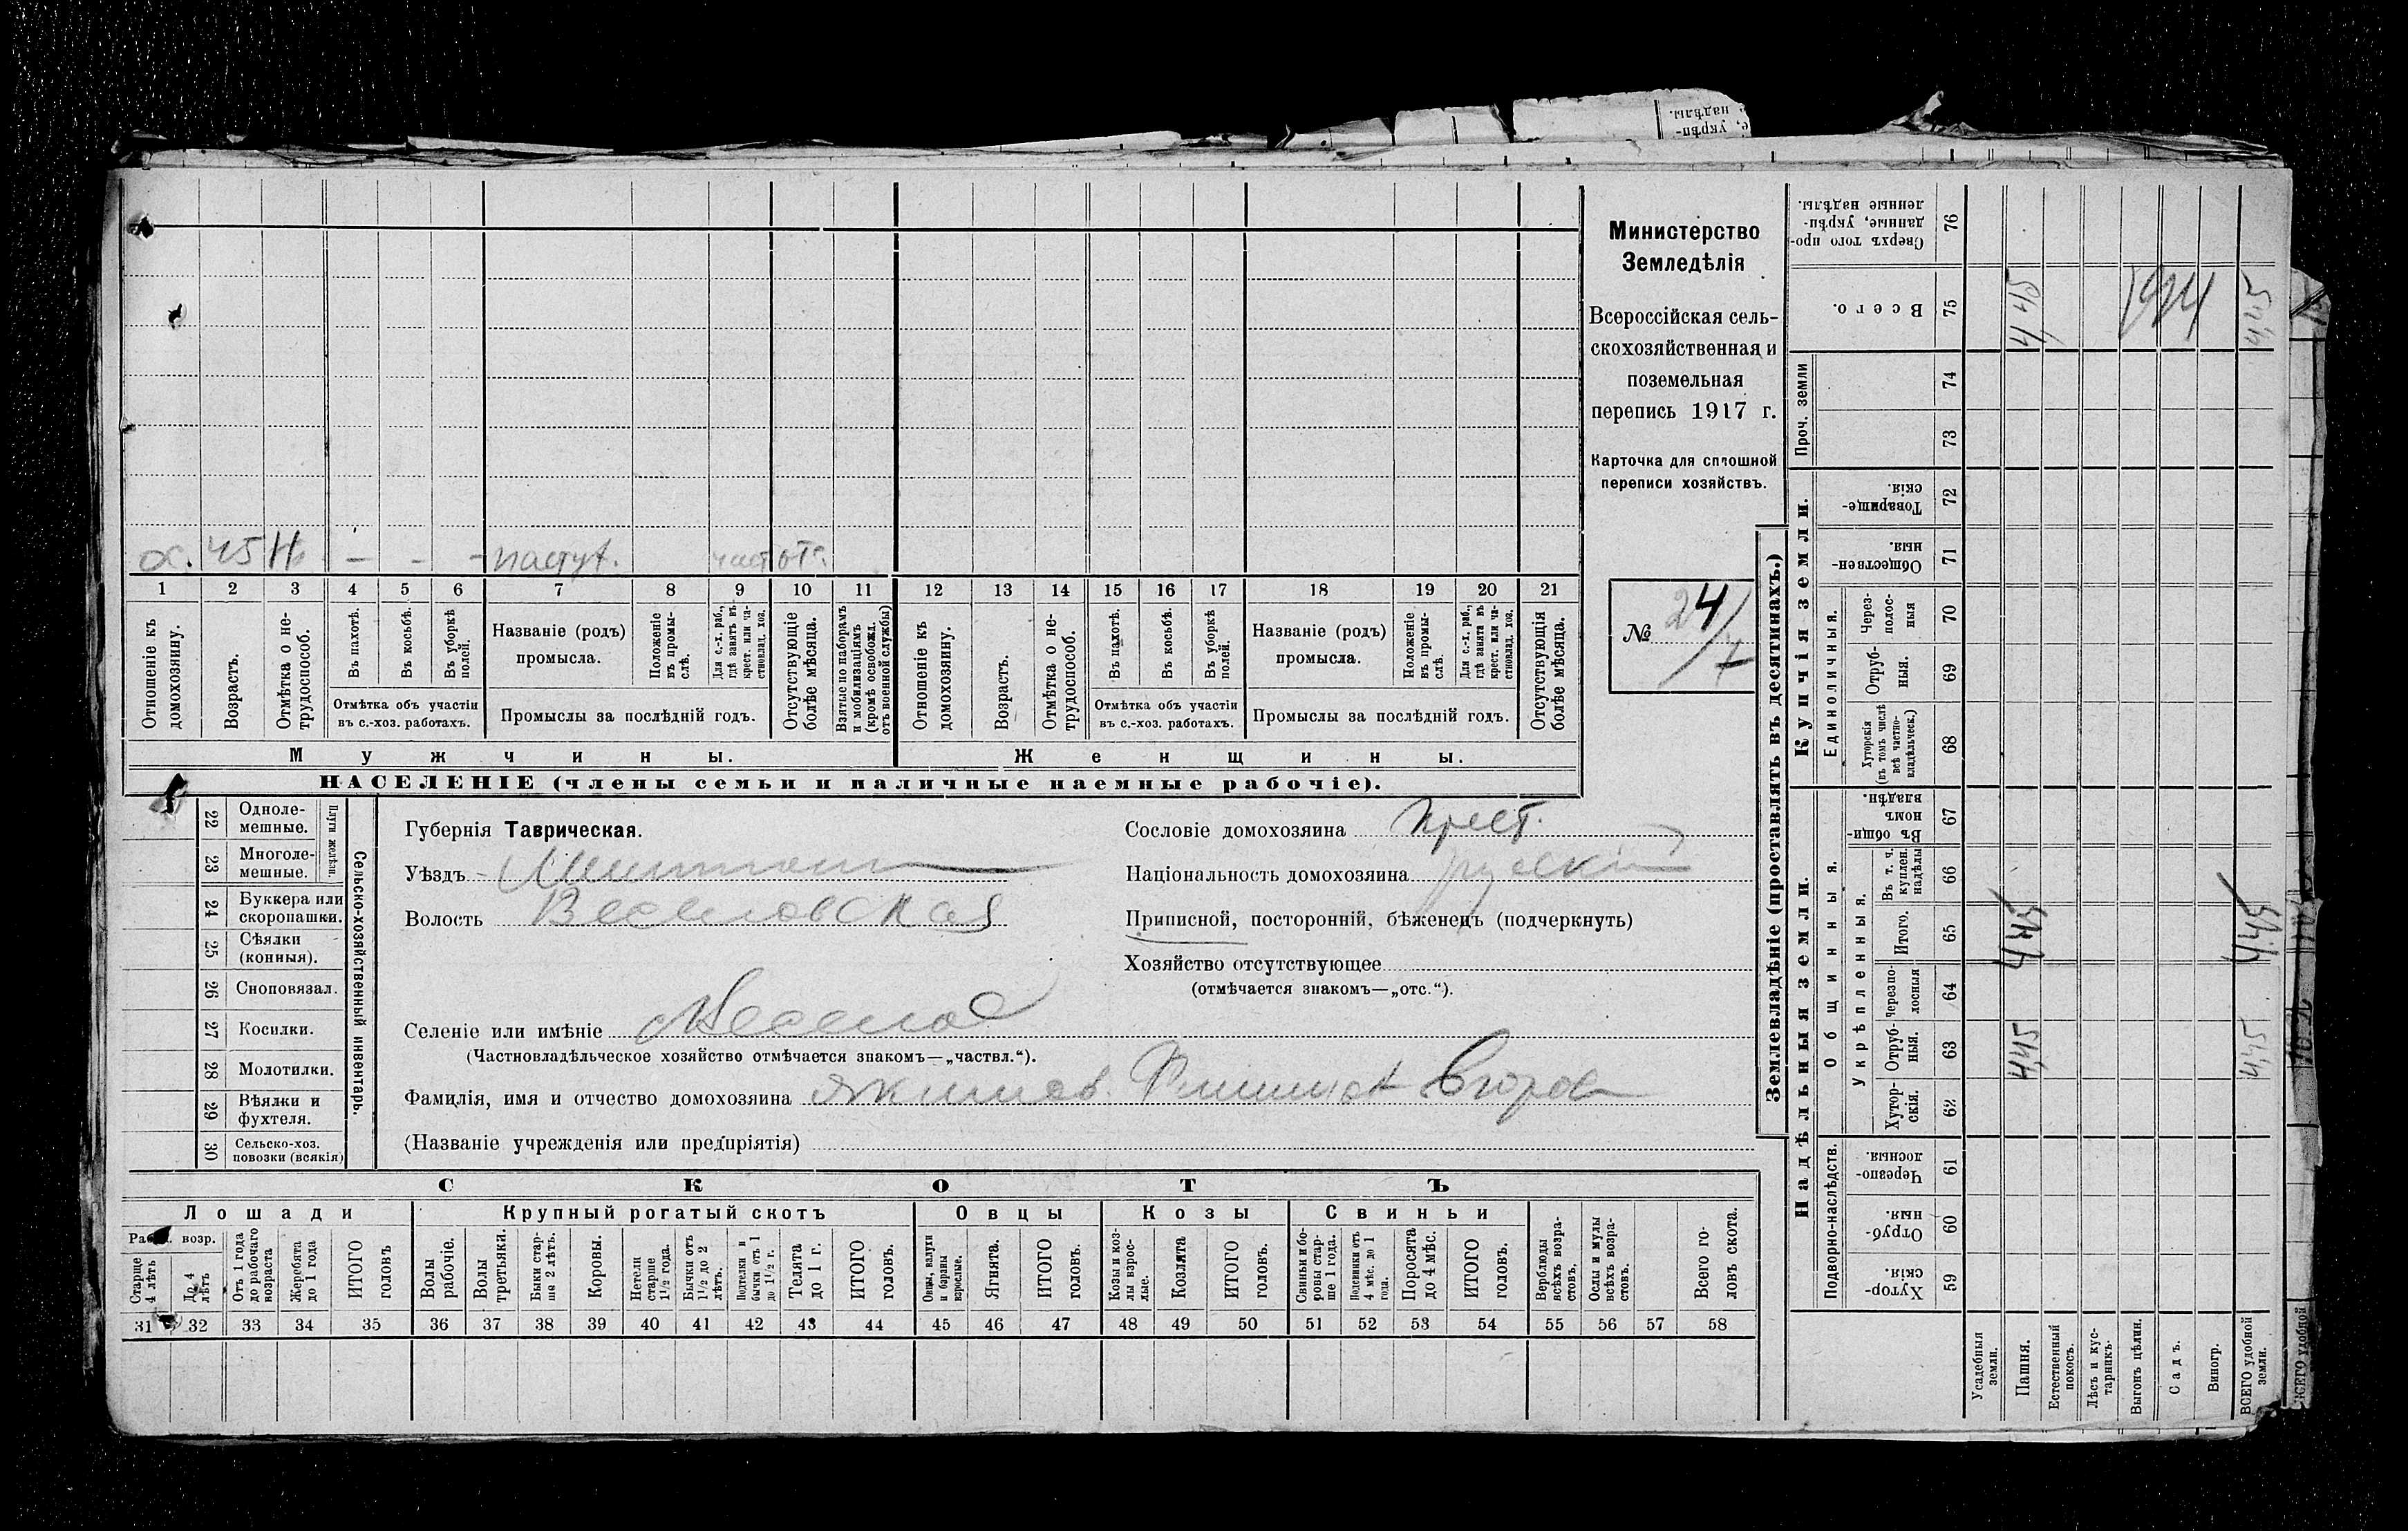 е, укрѣп-
надѣлы.
х. 45 Н. - - - пастух. част отс.
1 2 3 4 5 6 7 8 9 10 11 12 13 14 15 16 17 18 19 20 21
Отношеніе къ домохозяину.
Возрастъ.
Отмѣтка о не-трудоспособ.
Въ пахотѣ.
Въ косьбѣ.
Въ уборкѣ полей.
Отмѣтка объ участіи
въ с.-хоз. работахъ.
Названіе (родъ)
промысла.
Положеніе въ промы-слѣ.
Для с.-х. раб., гдѣ занятъ въ крест. или ча-стновлад. хоз.
Промыслы за послѣдній годъ.
Отсутствующіе болѣе мѣсяца.
Взятые по наборамъ и мобилизаціямъ (кромѣ освобожд. отъ военной службы)
Отношеніе къ домохозяину.
Возрастъ.
Отмѣтка о не-трудоспособ.
Въ пахотѣ.
Въ косьбѣ.
Въ уборкѣ полей.
Отмѣтка объ участіи
въ с.-хоз. работахъ.
Названіе (родъ)
промысла.
Положеніе въ промы-слѣ.
Для с.-х. раб., гдѣ занята въ крест. или ча-стновлад. хоз.
Промыслы за послѣдній годъ.
Отсутствующія болѣе мѣсяца.
Мужчины.
Женщины.
НАСЕЛЕНІЕ (члены семьи и наличные наемные рабочіе).
Министерство
Земледѣлія
Всероссійская сель-
скохозяйственная и
поземельная
перепись 1917 г.
Карточка для сплошной
переписи хозяйствъ.
№ 24/
22 Одноле-мешные.
23 Многоле-мешные.
Плуги желѣзн.
24 Буккера или скоропашки.
25 Сѣялки (конныя).
26 Сноповязал.
27 Косилки.
28 Молотилки.
29 Вѣялки и фухтеля.
30 Сельско-хоз. повозки (всякія)
Сельско-хозяйственный инвентарь.
Губернія Таврическая.
Уѣздъ
Волость Веселовская
Селеніе или имѣніе с Веселое
(Частновладѣльческое хозяйство отмѣчается знакомъ—„частвл.“).
Фамилія, имя и отчество домохозяина Якимов Филипп Егоров
(Названіе учрежденія или предпріятія)
Сословіе домохозяина Крест.
Національность домохозяина русскій
Приписной, посторонній, бѣженецъ (подчеркнуть)
Хозяйство отсутствующее
(отмѣчается знакомъ—„отс.“).
СКОТЪ
Лошади
Крупный рогатый скотъ
Овцы
Козы
Свиньи
возр.
Старше 4 лѣтъ
До 4 лѣтъ
Отъ 1 года до рабочаго возраста
Жеребята до 1 года
ИТОГО головъ
Волы рабочіе.
Волы третьяки.
Быки стар-ше 2 лѣтъ.
Коровы.
Нетели старше 1½ года.
Бычки отъ 1½ до 2 лѣтъ.
Подтелки и бычки отъ 1 до 1½ г.
Телята до 1 г.
ИТОГО головъ.
Овцы, валухи и бараны взрослые.
Ягнята.
ИТОГО головъ.
Козы и коз-лы взрос-лые.
Козлята
ИТОГО головъ.
Свиньи и бо-ровы стар-ше 1 года.
Подсвинки отъ 4 мѣс. до 1 года.
Поросята до 4 мѣс.
ИТОГО головъ.
Верблюды всѣхъ возра-стовъ.
Ослы и мулы всѣхъ возра-стовъ.
Всего го-ловъ скота.
31 32 33 34 35 36 37 38 39 40 41 42 43 44 45 46 47 48 49 50 51 52 53 54 55 56 57 58
Землевладѣніе (проставлять въ десятинахъ.)
Надѣльныя земли.
Купчія земли.
Проч. земли
Подворно-наслѣдств.
Общинныя.
Укрѣпленныя.
Единоличныя.
Сверхъ того про-данные, укрѣп-ленные надѣлы. 76
Всего. 75 4,45 4,45
74
73
Товарище-скія. 72
Обществен-ныя. 71
Через-полос-ныя 70
Отруб-ныя. 69
Хуторскія (въ томъ числѣ всѣ частно-владѣльческ.) 68
Въ общи-номъ владѣн. 67
Въ т. ч. куплен. надѣлы 66
Итого. 65 4,45 4,45
Черезпо-лосныя 64
Отруб-ныя. 63 4,45 4,45
Хутор-скія. 62
Черезпо-лосныя. 61
Отруб-ныя. 60
Хутор-скія. 59
Усадебныя земли.
Пашня.
Естественный покосъ.
Лѣсъ и кус-тарникъ.
Выгонъ цѣлин.
Садъ.
Виногр.
ВСЕГО удобной земли.
ВСЕГО удобной